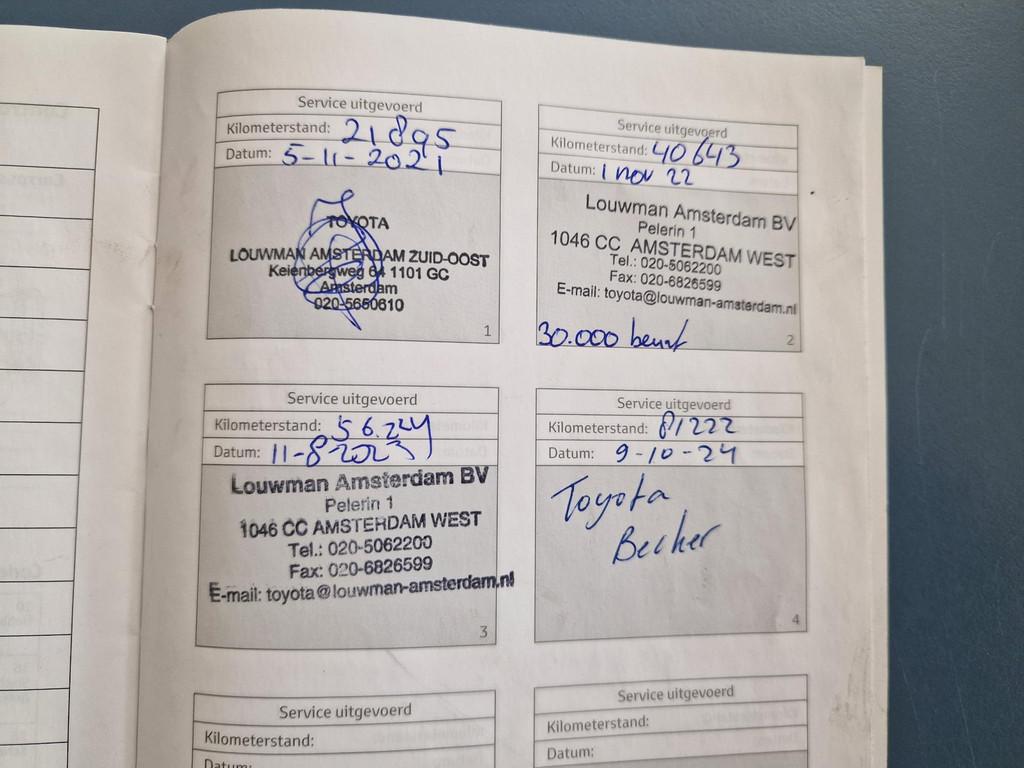 Service uitgevoerd
Kilometerstand: 21895
Datum: 5-11-2021
TOYOTA
LOUWMAN AMSTERDAM ZUID-OOST
Keienbergweg 64 1101 GC
Amsterdam
020-5650610
1
Service uitgevoerd
Kilometerstand: 40643
Datum: 1 nov 22
Louwman Amsterdam BV
Pelerin 1
1046 CC AMSTERDAM WEST
Tel.: 020-5062200
Fax: 020-6826599
E-mail: toyota@louwman-amsterdam.nl
30.000 beurt
2
Service uitgevoerd
Kilometerstand: 56.224
Datum: 11-8-2023
Louwman Amsterdam BV
Pelerin 1
1046 CC AMSTERDAM WEST
Tel.: 020-5062200
Fax: 020-6826599
E-mail: toyota@louwman-amsterdam.nl
3
Service uitgevoerd
Kilometerstand: 81222
Datum: 9-10-24
Toyota
Becker
4
Service uitgevoerd
Kilometerstand:
Datum:
Service uitgevoerd
Kilometerstand:
Datum: